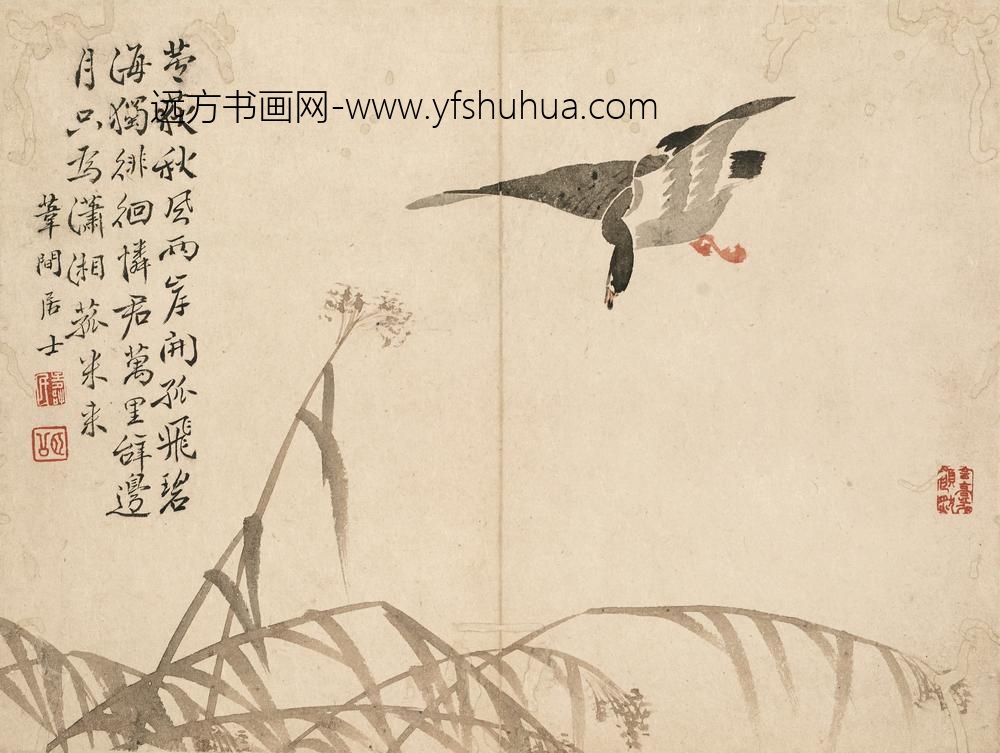 芦荻秋風兩岸開孤飛碧
海獨徘徊憐君萬里辭邊
月只為瀟湘菰米来
葦間居士
远方书画网-www.yfshuhua.com